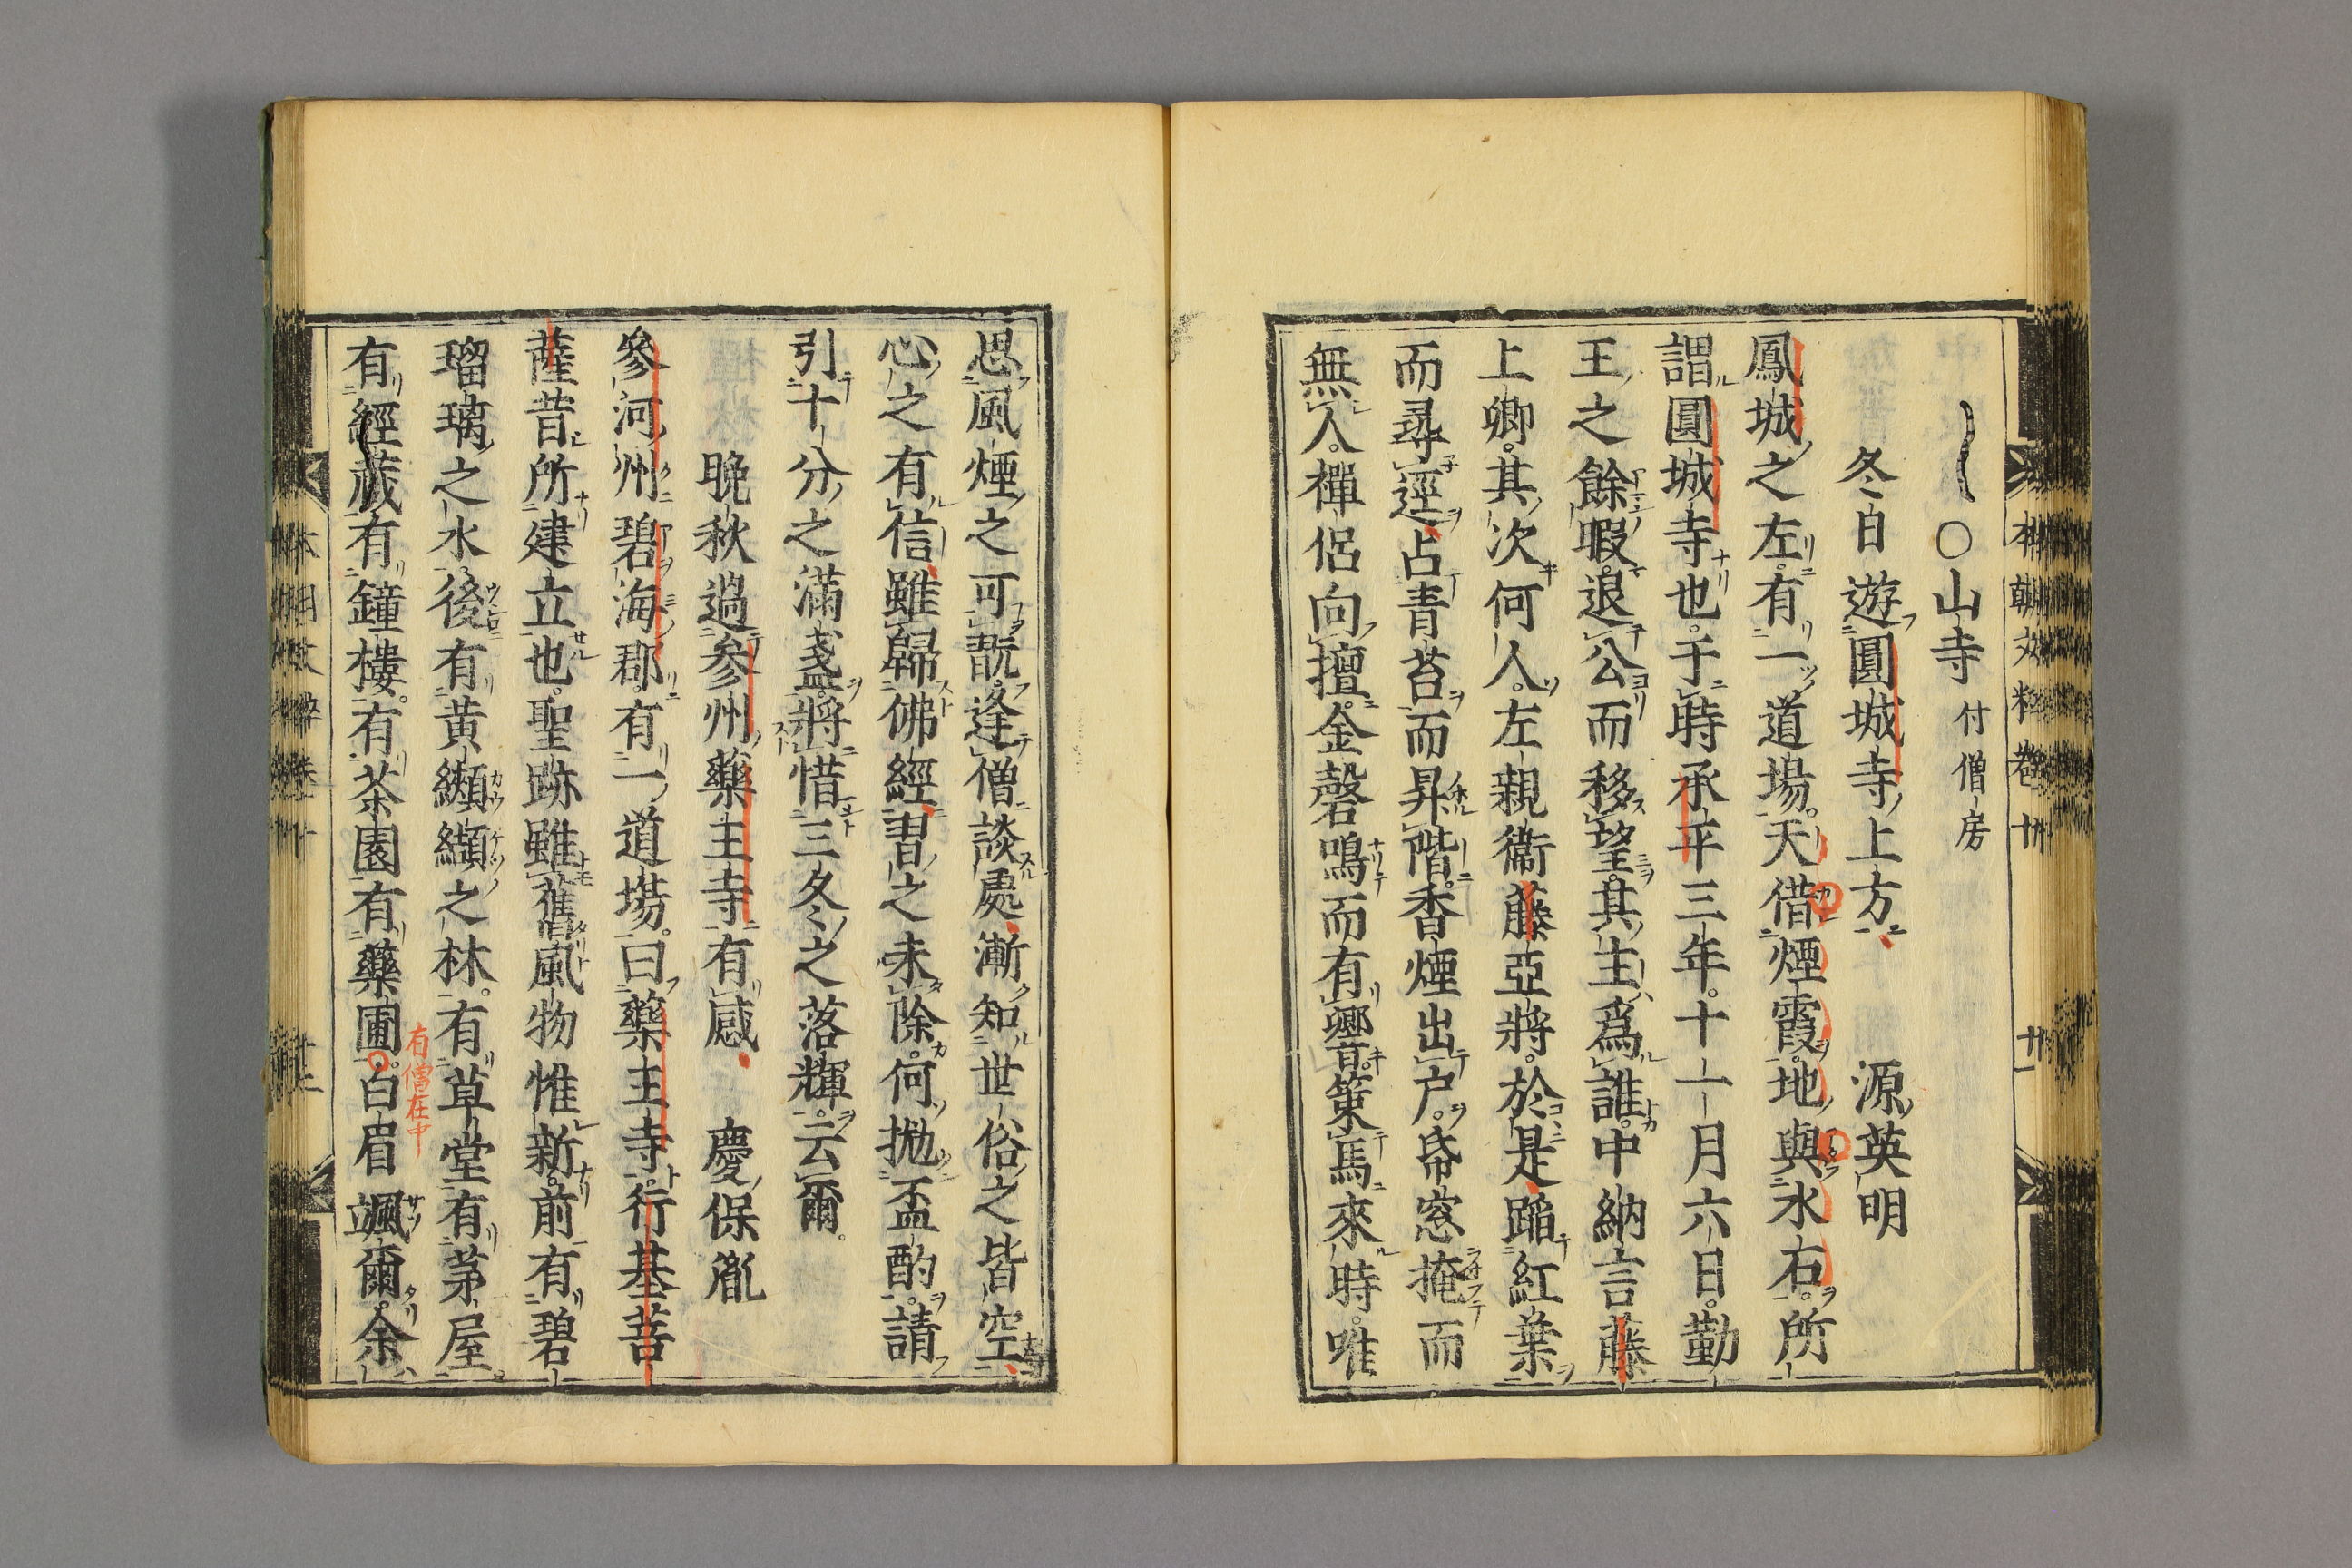 本朝文粹卷十　廿一
〇山寺付僧房
冬日遊圓城寺上方　源英明
鳳城之左有一道場天借煙霞地與水石所
謂圓城寺也于時承平三年十一月六日勤
王之餘暇退公而移望其主爲誰中納言藤
上卿其次何人左親衞藤亞將於是蹈紅葉
而尋逕占青苔而昇階香煙出戸帋窓掩而
無人禪侶向壇金磬鳴而有響策馬來時唯
思風煙之可翫逢僧談處漸知世俗之皆空
心之有信雖歸佛經習之未除何抛盃酌請
引十分之滿盞將惜三冬之落輝云爾
晩秋過參州藥王寺有感　慶保胤
參河州碧海郡有一道塲曰藥王寺行基菩
薩昔所建立也聖跡雖舊風物惟新前有碧
瑠璃之水後有黄纐纈之林有草堂有茅屋
有經藏有鐘樓有茶園有藥圃白眉颯爾余
有僧在中
本朝文粹卷十